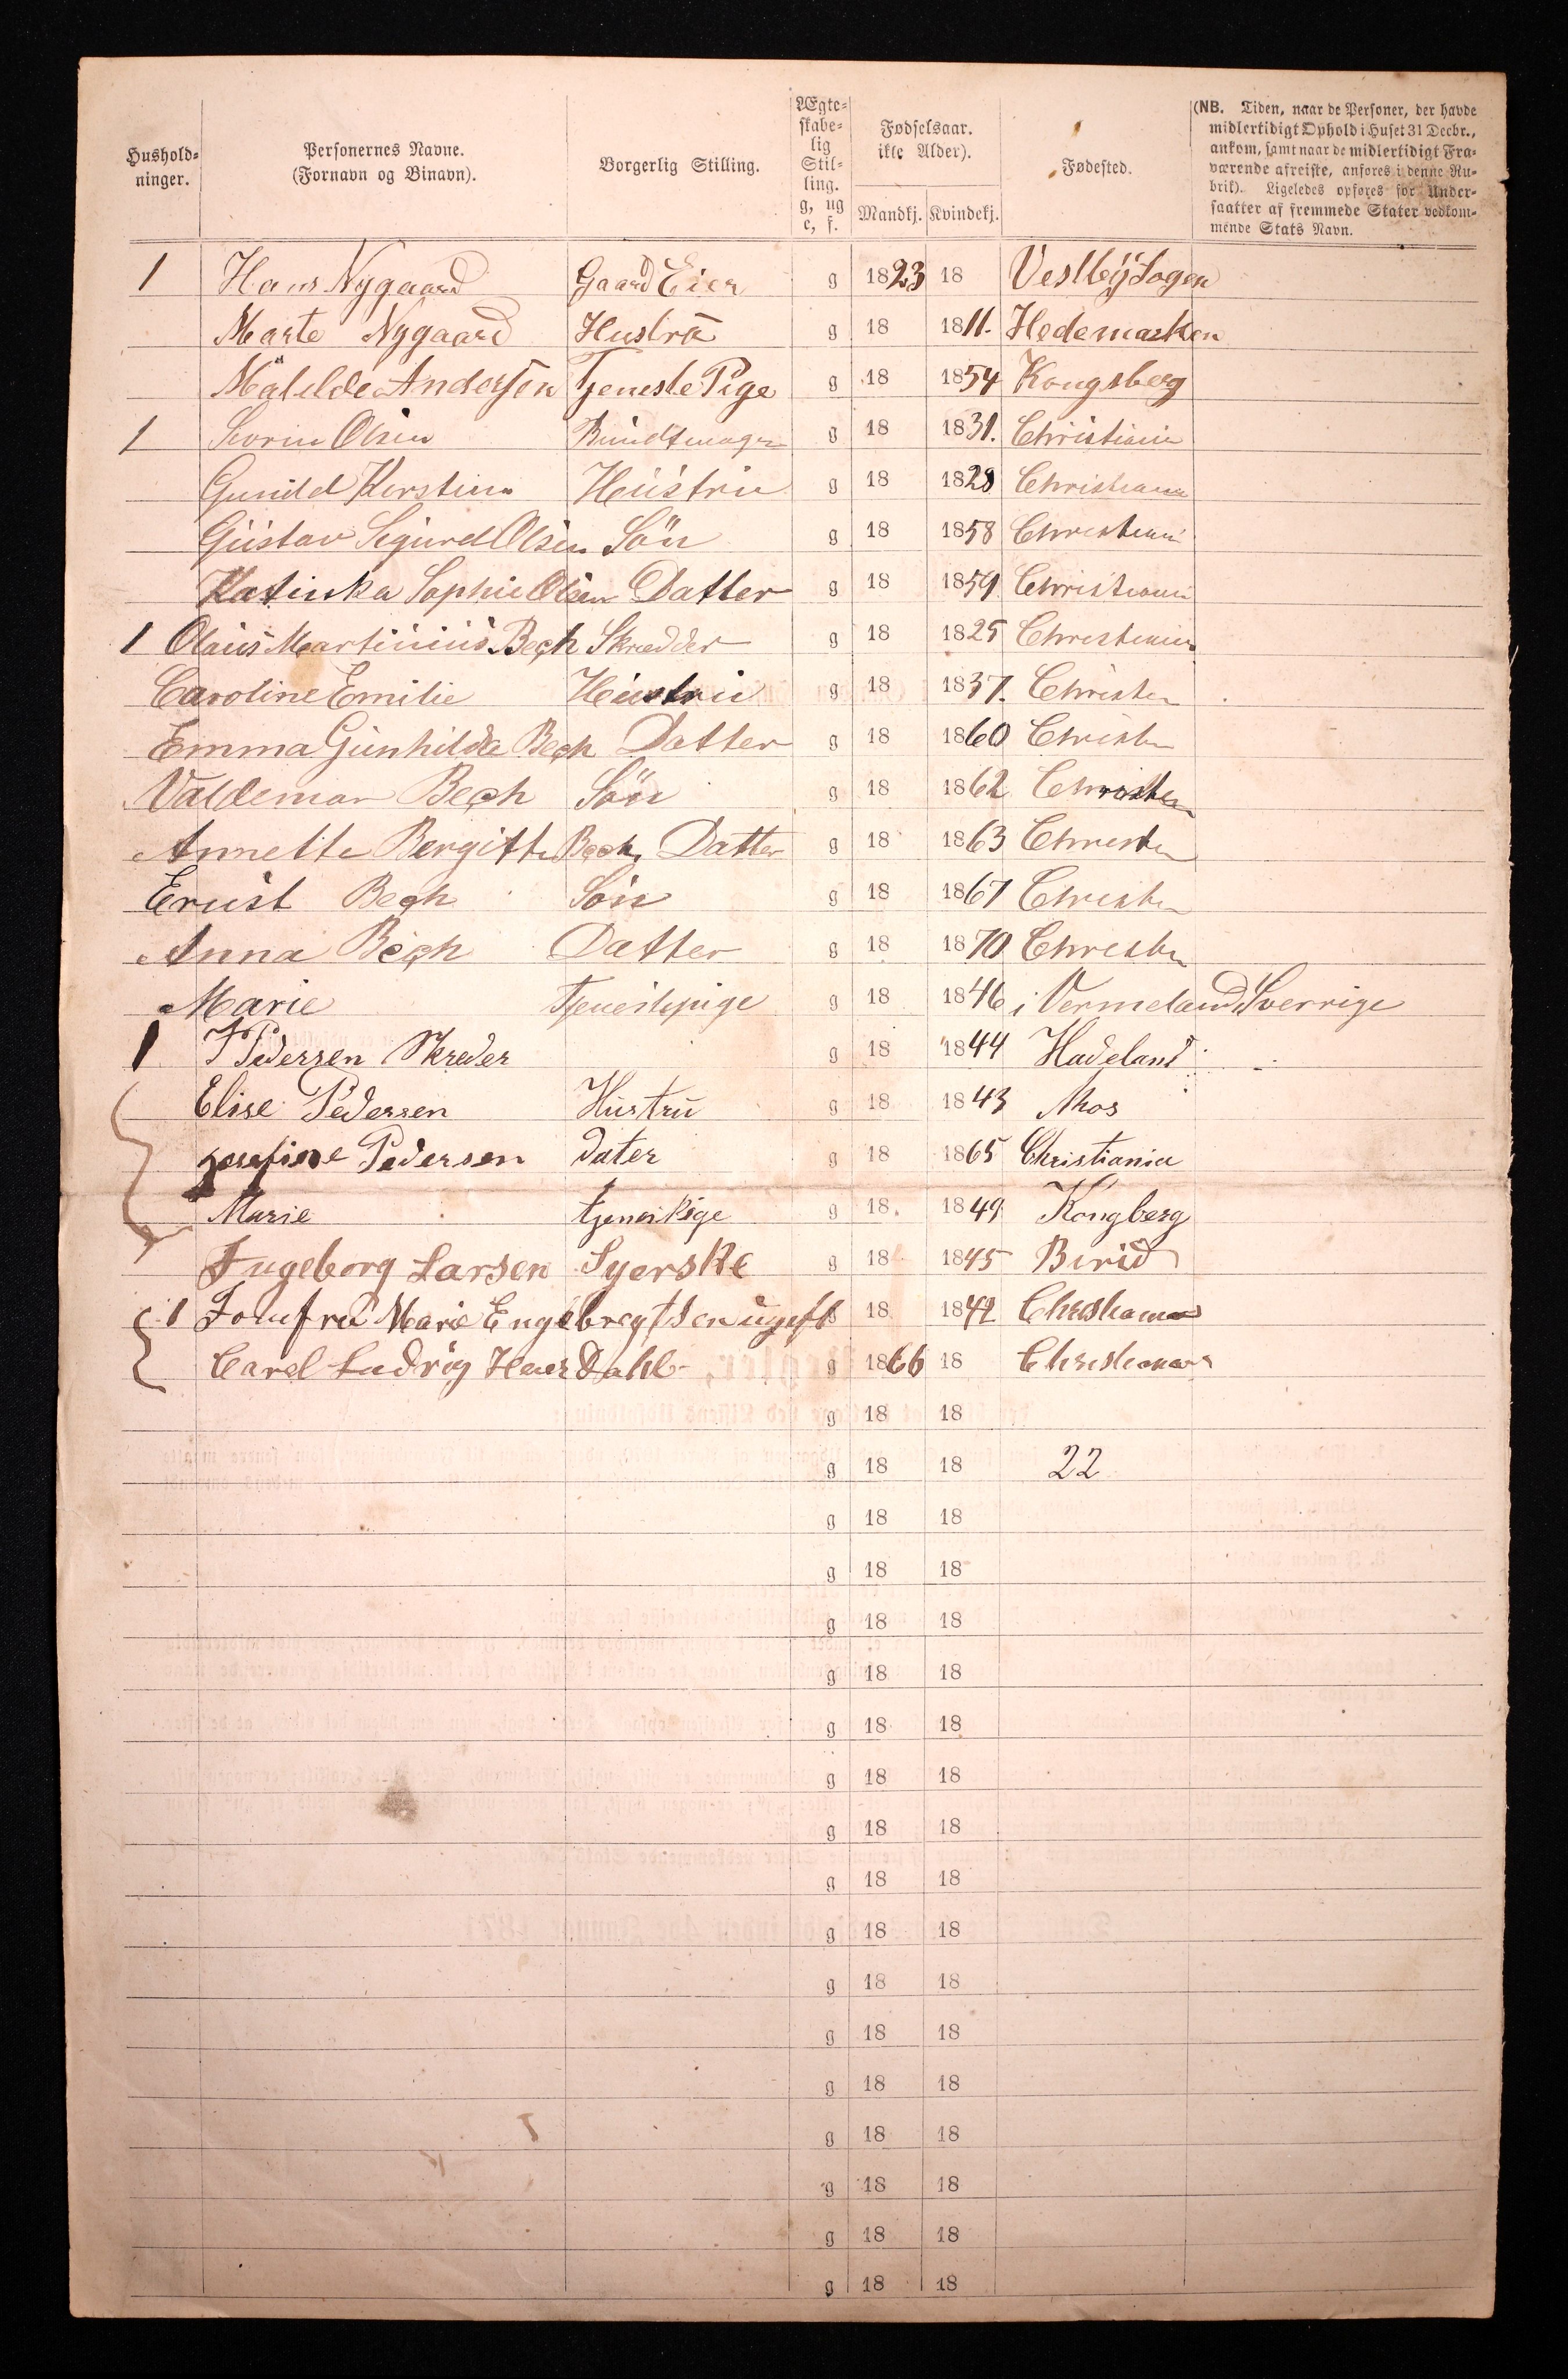 Hushold-
ninger.
Personernes Navne.
(Fornavn og Binavn).
Borgerlig Stilling.
Ægte-
skabe-
lig
Stil-
ling.
g, ug
e, f.
Fødselsaar.
ikke Alder).
Mandkj. Kvindekj.
Fødested.
(NB. Tiden, naar de Personer, der havde
midlertidigt Ophold i Huset 31 Decbr.,
ankom, samt naar de midlertidigt Fra-
værende afreiste, anføres i denne Ru-
brik). Ligeledes opføres for Under-
saatter af fremmede Stater vedkom-
mende Stats Navn.
1 Hans Nygaard Gaard Eier g 1823 18 Vestbÿ Sogen
Marte Nygaard Hustru g 18 1811. Hedemarken
Matelde Andersen Tjeneste Pige g 18 1854 Kongsberg
1 Olsen Bundtmager g 18 1831. Christiania
Gunild Kirstine Hustru g 18 1828 Christiania
Gustav Sigurd Olsen Sön g 18 1858 Christiania
Katinka Sophie Olsen Datter g 18 1859 Christiania
1 Olaus Martinius Bech Skrædder g 18 1825 Christiania
Caroline Emilie Hustru g 18 1837. Christen
Emma Gunhilda Bech Datter g 18 1860 Christen
Valdemar Bech Sön g 18 1862 Christen
Annette Bergitte Bech Datter g 18 1863 Christen
Ernst Bech Sön g 18 1867 Christen
Anna Bech Datter g 18 1870 Christen
Marie Tjenestepige g 18 1846 i Vermeland Sverrige
1 Pedersen Skreder g 18 1844 Hadeland
Elise Pedersen Hustru g 18 1843 Mos
Josefine Pedersen dater g 18 1865 Christiania
Marie g 18 1849 Kongberg
Ingeborg Larsen Syerske g 18 1845 Birid
1 Jomfru Marie Engebregtsen ugift g 18 1842 Christiania
Carel Ludvig Dahl g 1866 18 Christiania
g 18 18
g 18 18 22
g 18 18
g 18 18
g 18 18
g 18 18
g 18 18
g 18 18
g 18 18
g 18 18
g 18 18
g 18 18
g 18 18
g 18 18
g 18 18
g 18 18
g 18 18
g 18 18